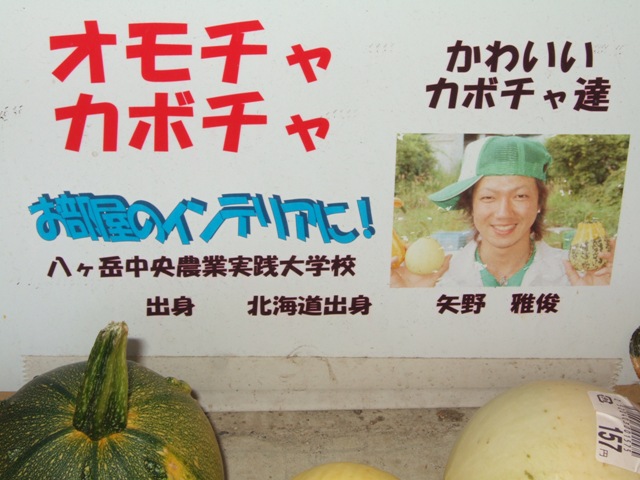 オモチャ
カボチャ
かわいい
カボチャ達
お部屋のインテリアに!
八ヶ岳中央農業実践大学校
出身 北海道出身 矢野 雅俊
157円